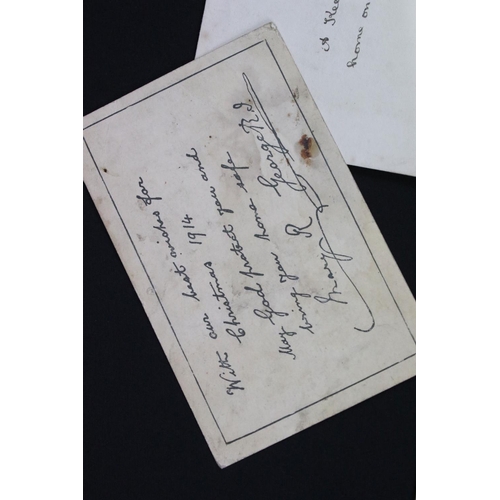 With our best wishes for
Christmas 1914
May God protect you and
bring you home safe
Mary R George R.I.
A Kee
home on